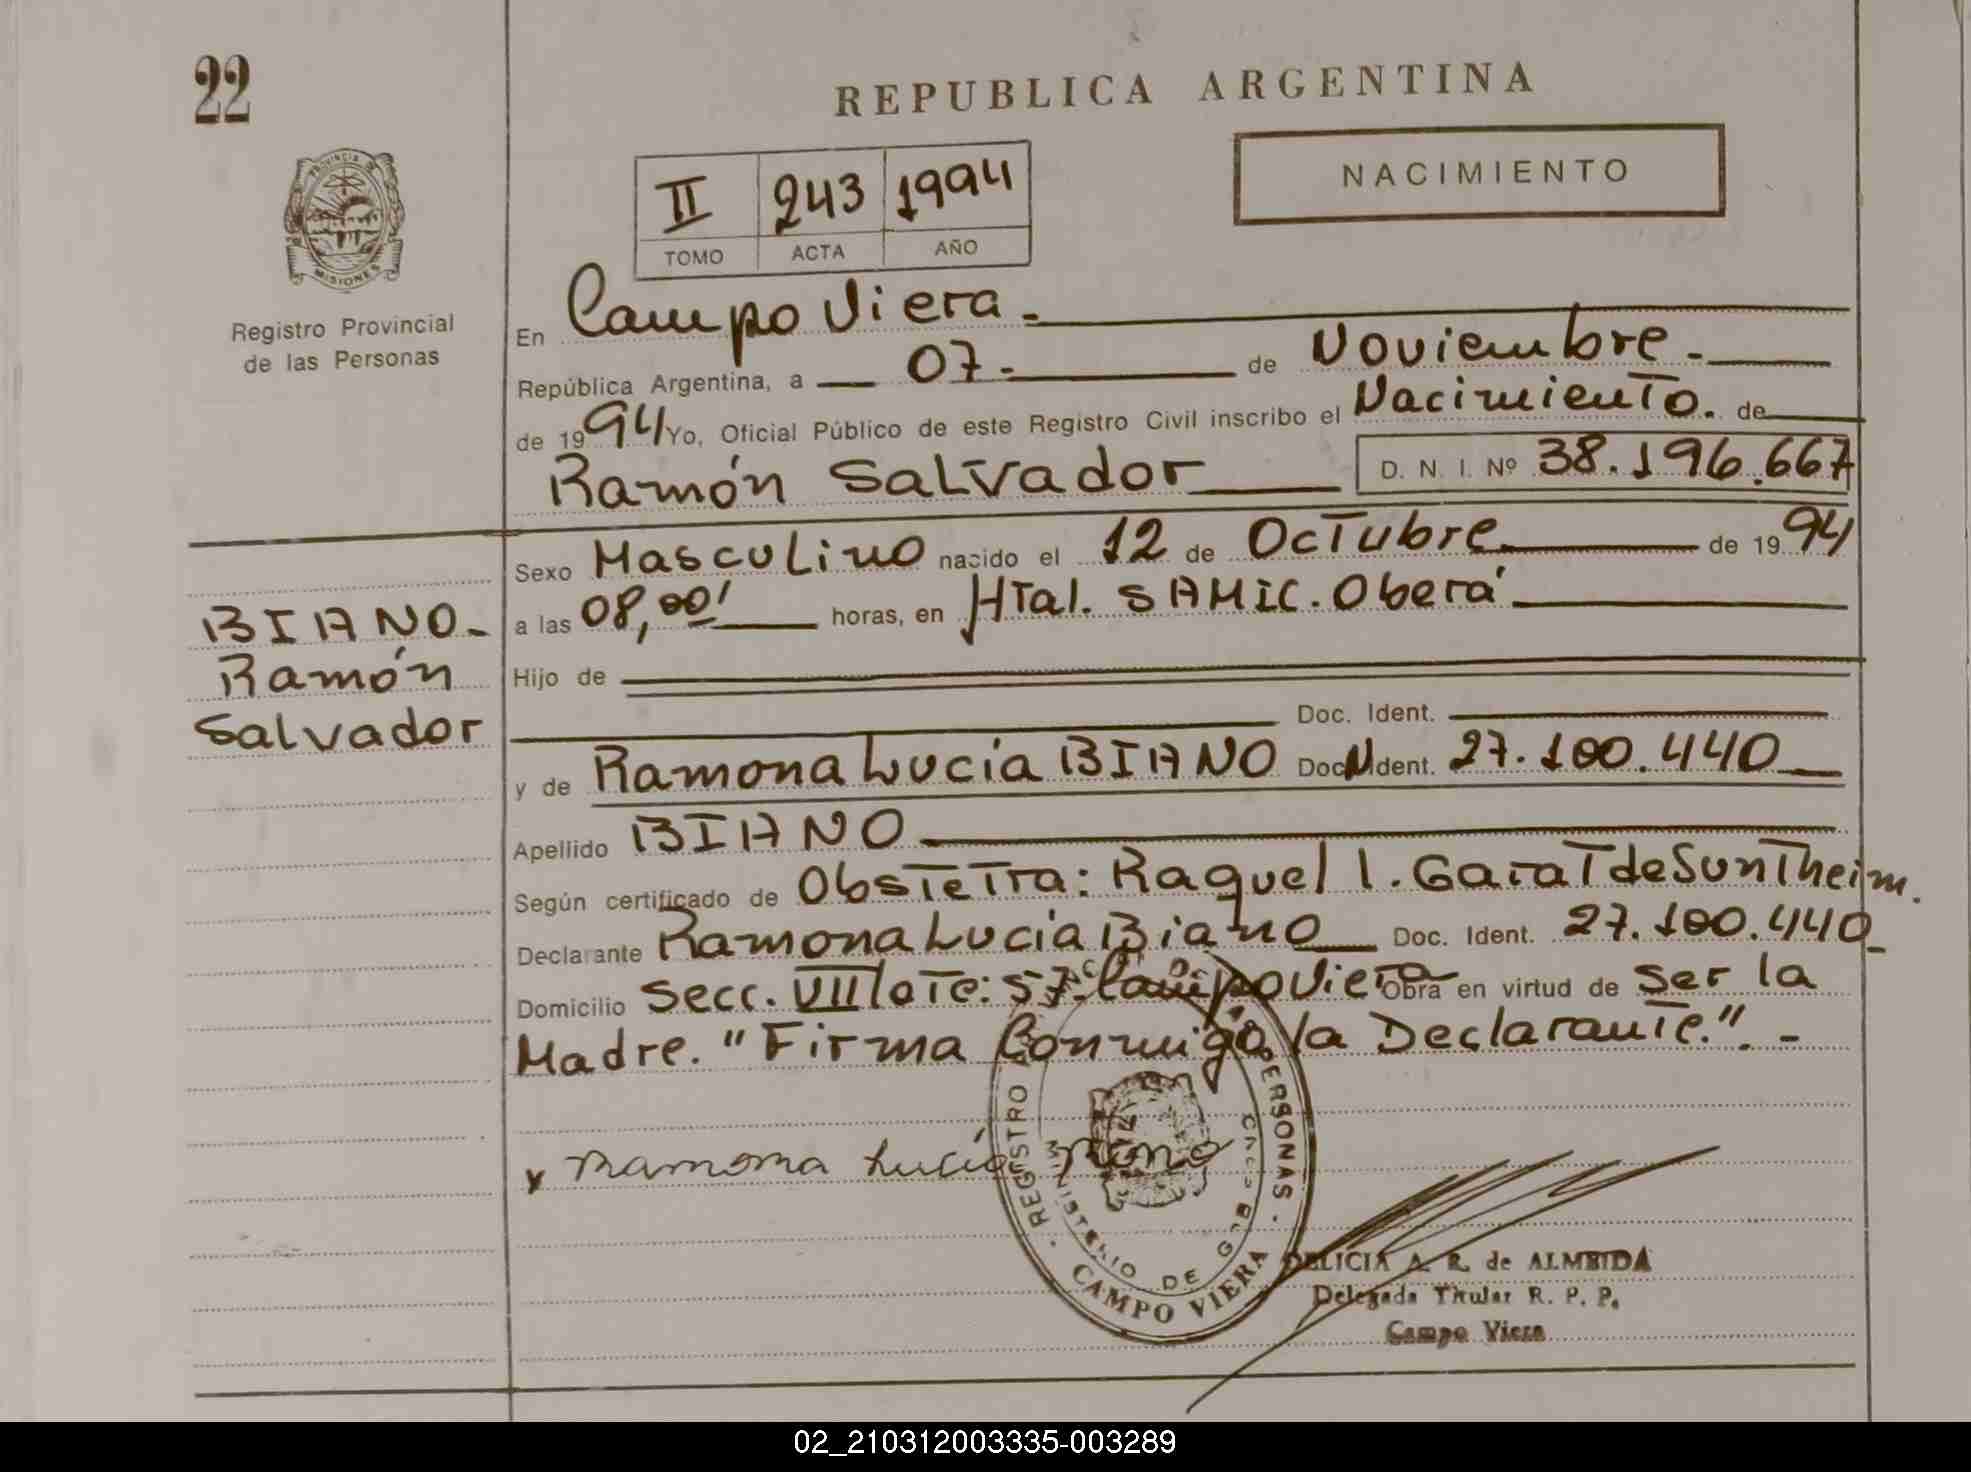 22
REPUBLICA ARGENTINA
NACIMIENTO
II 243 1994
TOMO ACTA AÑO
PROVINCIA DE
MISIONES
Registro Provincial
de las Personas
En Campo Viera.
República Argentina, a 07. de Noviembre.
de 1994 Yo, Oficial Público de este Registro Civil inscribo el Nacimiento. de
Ramón Salvador D. N. I. Nº 38.196.667
Sexo Masculino nacido el 12 de Octubre de 1994
a las 08,00' horas, en Htal. SAMIC. Oberá
BIANO.
Ramón
Salvador
Hijo de
Doc. Ident.
y de Ramona Lucía BIANO Doc. Ident. 27.100.440
Apellido BIANO
Según certificado de Obstetra: Raquel I. Garat de Suntheim.
Declarante Ramona Lucía Biano Doc. Ident. 27.100.440
Domicilio Secc. VII lote: 57. Campo Viera Obra en virtud de Ser la
Madre. "Firma Conmigo la Declarante". -
x Ramona Lucía
REGISTRO PERSONAS.
MINISTERIO DE GOB
CAMPO VIERA
DELICIA A. R. de ALMEIDA
Delegada Titular R. P. P.
Campo Viera
02_210312003335-003289